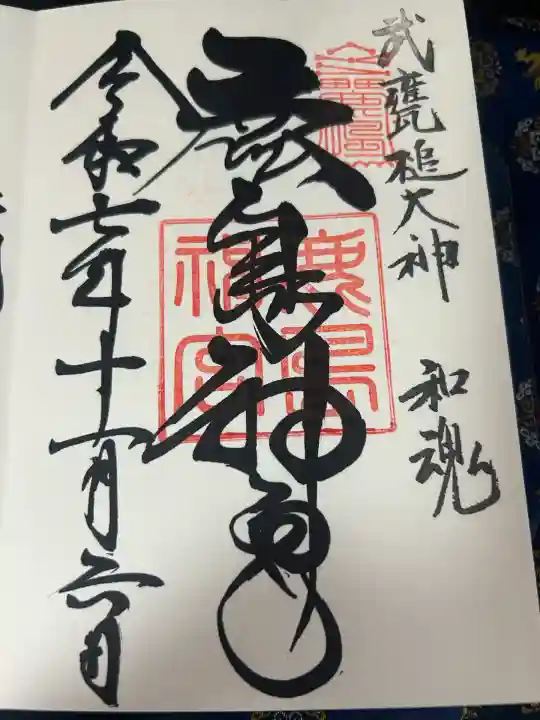 武甕槌大神 和魂
鹿島神宮
令和七年十一月六日
鹿島
神宮